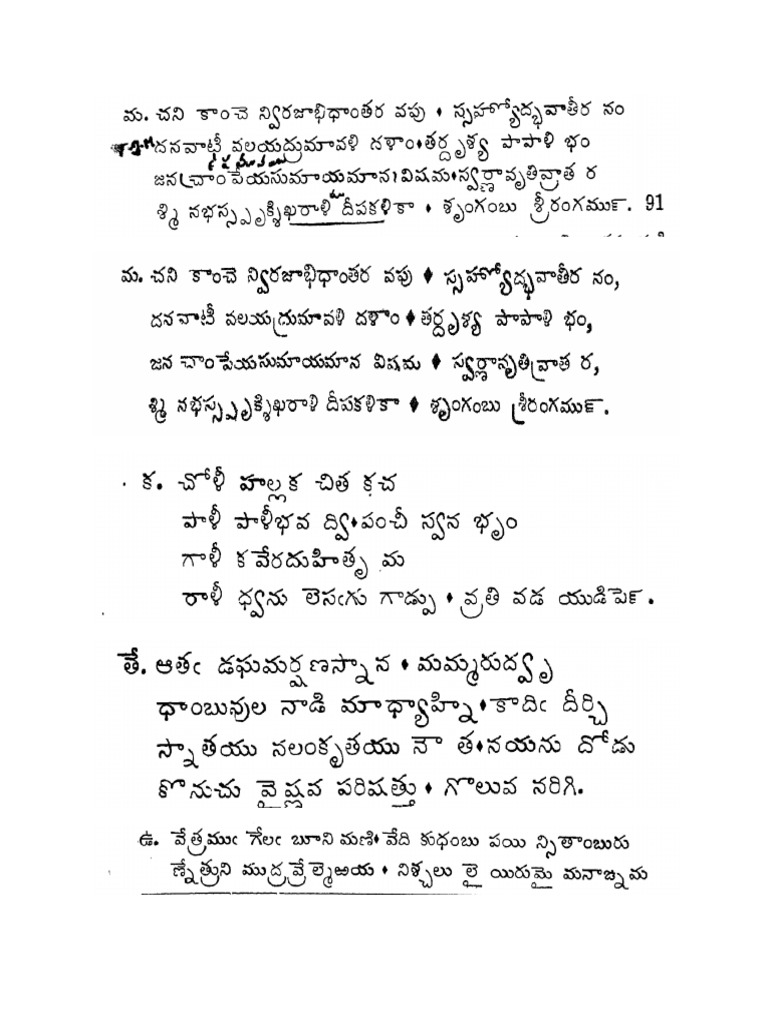 మ. చని కాంచె న్విరజాభిధాంతర వపు ♦ స్సహ్యోద్భవాతీర నం
దనవాటీ వలయద్రుమావళి దళాం♦తర్దృశ్య పాపాళి భం
జన చాంపేయసుమాయమాన విషమ♦స్వర్ణావృతివ్రాత ర
శ్మి నభస్స్పృక్శిఖరాళి దీపకళికా ♦ శృంగంబు శ్రీరంగమున్. 91
మ. చని కాంచె న్విరజాభిధాంతర వపు ♦ స్సహ్యోద్భవాతీర నం,
దనవాటీ వలయద్రుమావళి దళాం ♦ తర్దృశ్య పాపాళి భం,
జన చాంపేయసుమాయమాన విషమ ♦ స్వర్ణావృతివ్రాత ర,
శ్మి నభస్స్పృక్శిఖరాళి దీపకళికా ♦ శృంగంబు శ్రీరంగమున్.
క. చోళీ హల్లక చిత కచ
పాళీ పాళీభవ ద్వి♦పంచీ స్వన భృం
గాళీ కవేరదుహితృ మ
రాళీ ధ్వను లెసఁగు గాడ్పు ♦ వ్రతి వడ యుడిపెన్.
తే. ఆతఁ డఘమర్షణస్నాన ♦ మమ్మరుద్వృ
ధాంబువుల నాడి మాధ్యాహ్ని♦కాదిఁ దీర్చి
స్నాతయు నలంకృతయు నౌ త♦నయను దోడు
కొనుచు వైష్ణవ పరిషత్తు ♦ గొలువ నరిగి.
ఉ. వేత్రముఁ గేలఁ బూని మణి♦వేది కుధంబు పయి న్సితాంబురు
ణ్నేత్రుని ముద్రవ్రేల్మెఱయ ♦ నిశ్చలు లై యిరుమై మనాఙ్నమ